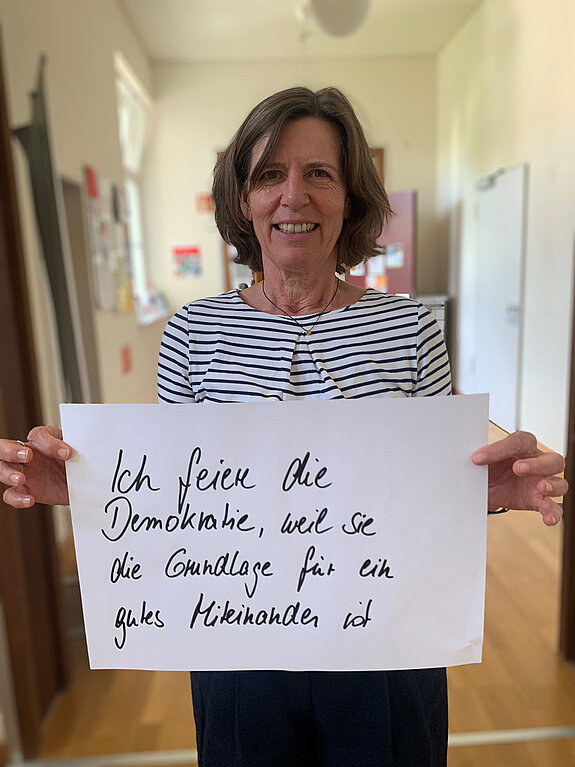 Ich feiere die
Demokratie, weil sie
die Grundlage für ein
gutes Miteinander ist